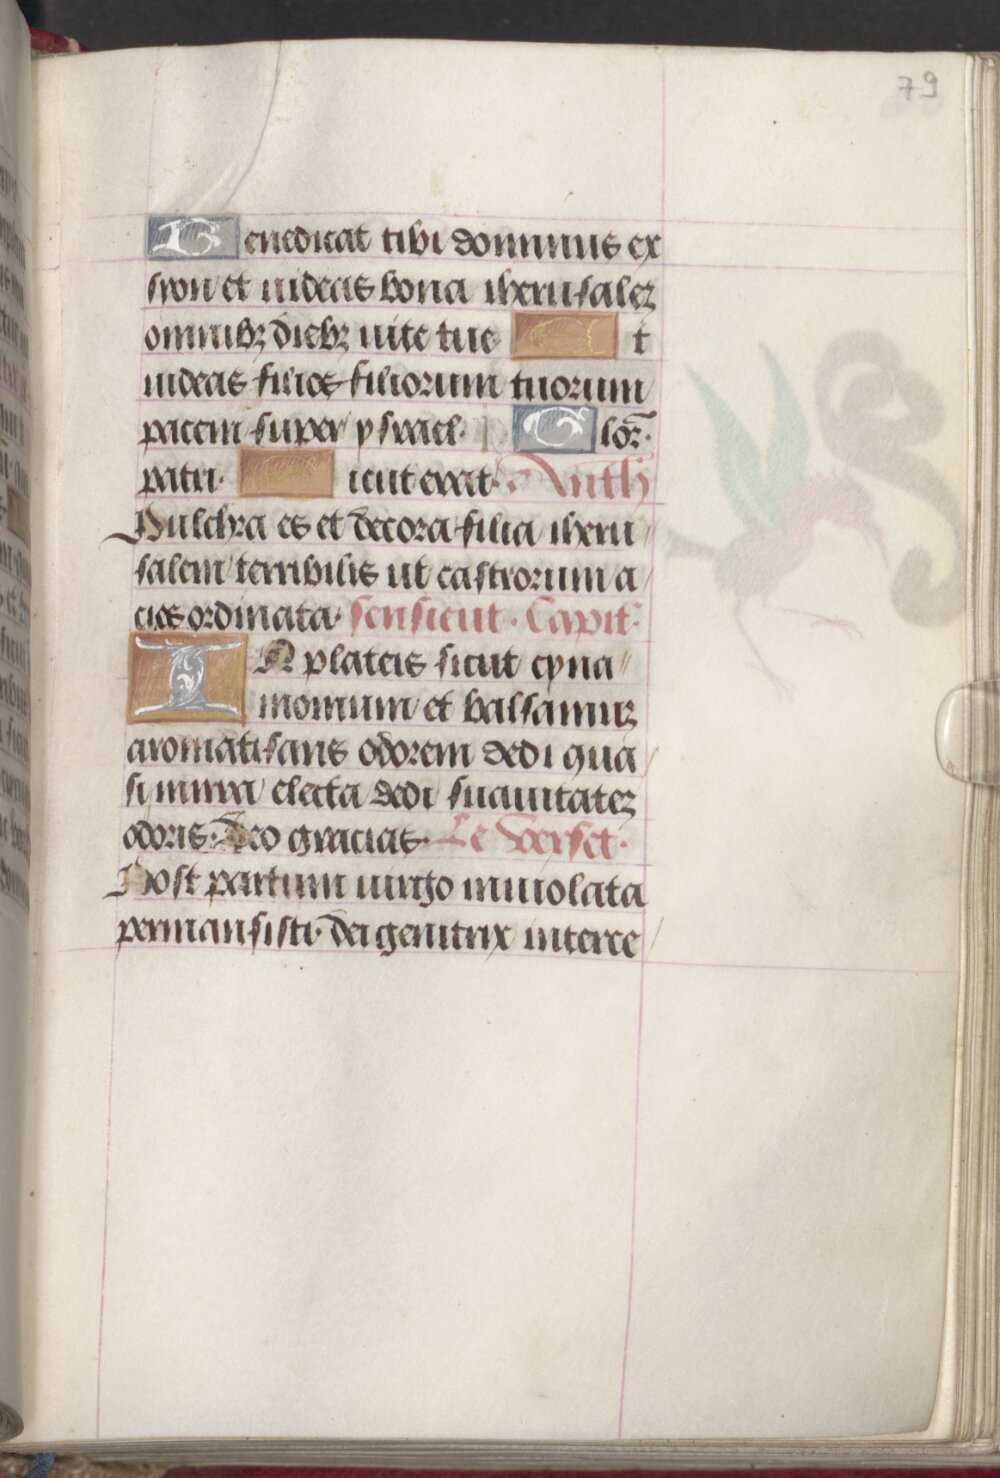 79
Benedicat tibi dominus ex
syon et uideas bona iherusalez
omnibz diebz uite tue Et
uideas filios filiorum tuorum
pacem super ysrael. Glor̄.
patri. Sicut erat. Anth
Pulchra es et decora filia iheru
salem terribilis ut castrorum a
cies ordinata. sensieut. Capit.
IN plateis sicut cyna
momum et balsamuz
aromatisans odorem dedi qua
si mirra electa dedi suauitatez
odoris. Deo gracias. Le verset.
Post partum uirgo inuiolata
permansisti. dei genitrix interce